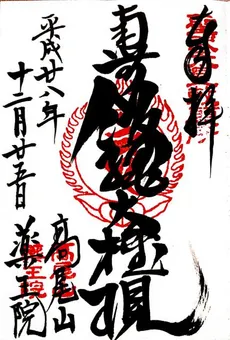 奉拝
飯縄大権現
平成廿八年
十二月廿五日
高尾山
薬王院